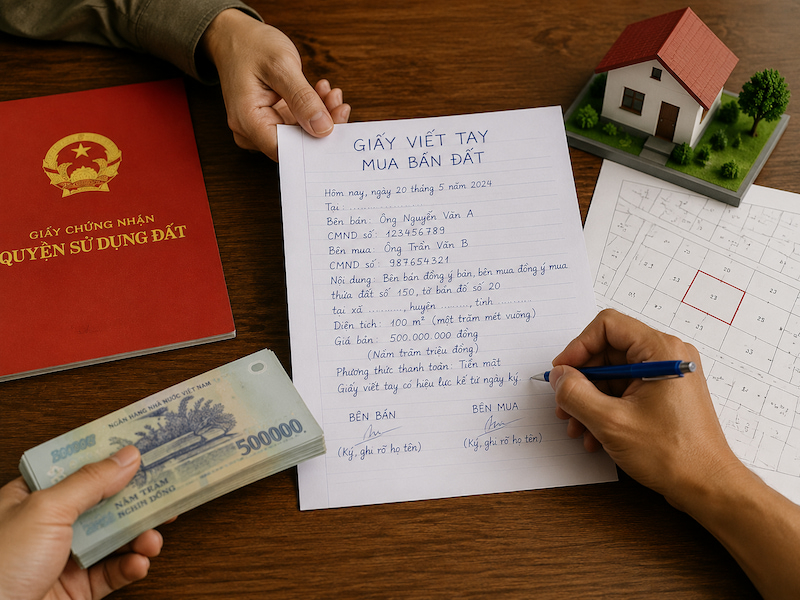 GIẤY CHỨNG NHẬN
QUYỀN SỬ DỤNG ĐẤT
GIẤY VIẾT TAY
MUA BÁN ĐẤT
Hôm nay, ngày 20 tháng 5 năm 2024
Tại: ....................
Bên bán: Ông Nguyễn Văn A
CMND số: 123456789
Bên mua: Ông Trần Văn B
CMND số: 987654321
Nội dung: Bên bán đồng ý bán, bên mua đồng ý mua
thửa đất số 150, tờ bản đồ số 20
tại xã .........., huyện .........., tỉnh ..........
Diện tích: 100 m² (một trăm mét vuông)
Giá bán: 500.000.000 đồng
(Năm trăm triệu đồng)
Phương thức thanh toán: Tiền mặt
Giấy viết tay có hiệu lực kể từ ngày ký.
BÊN BÁN
BÊN MUA
(Ký, ghi rõ họ tên)
(Ký, ghi rõ họ tên)
NGÂN HÀNG NHÀ NƯỚC VIỆT NAM
500000
NĂM TRĂM
NGHÌN ĐỒNG
23